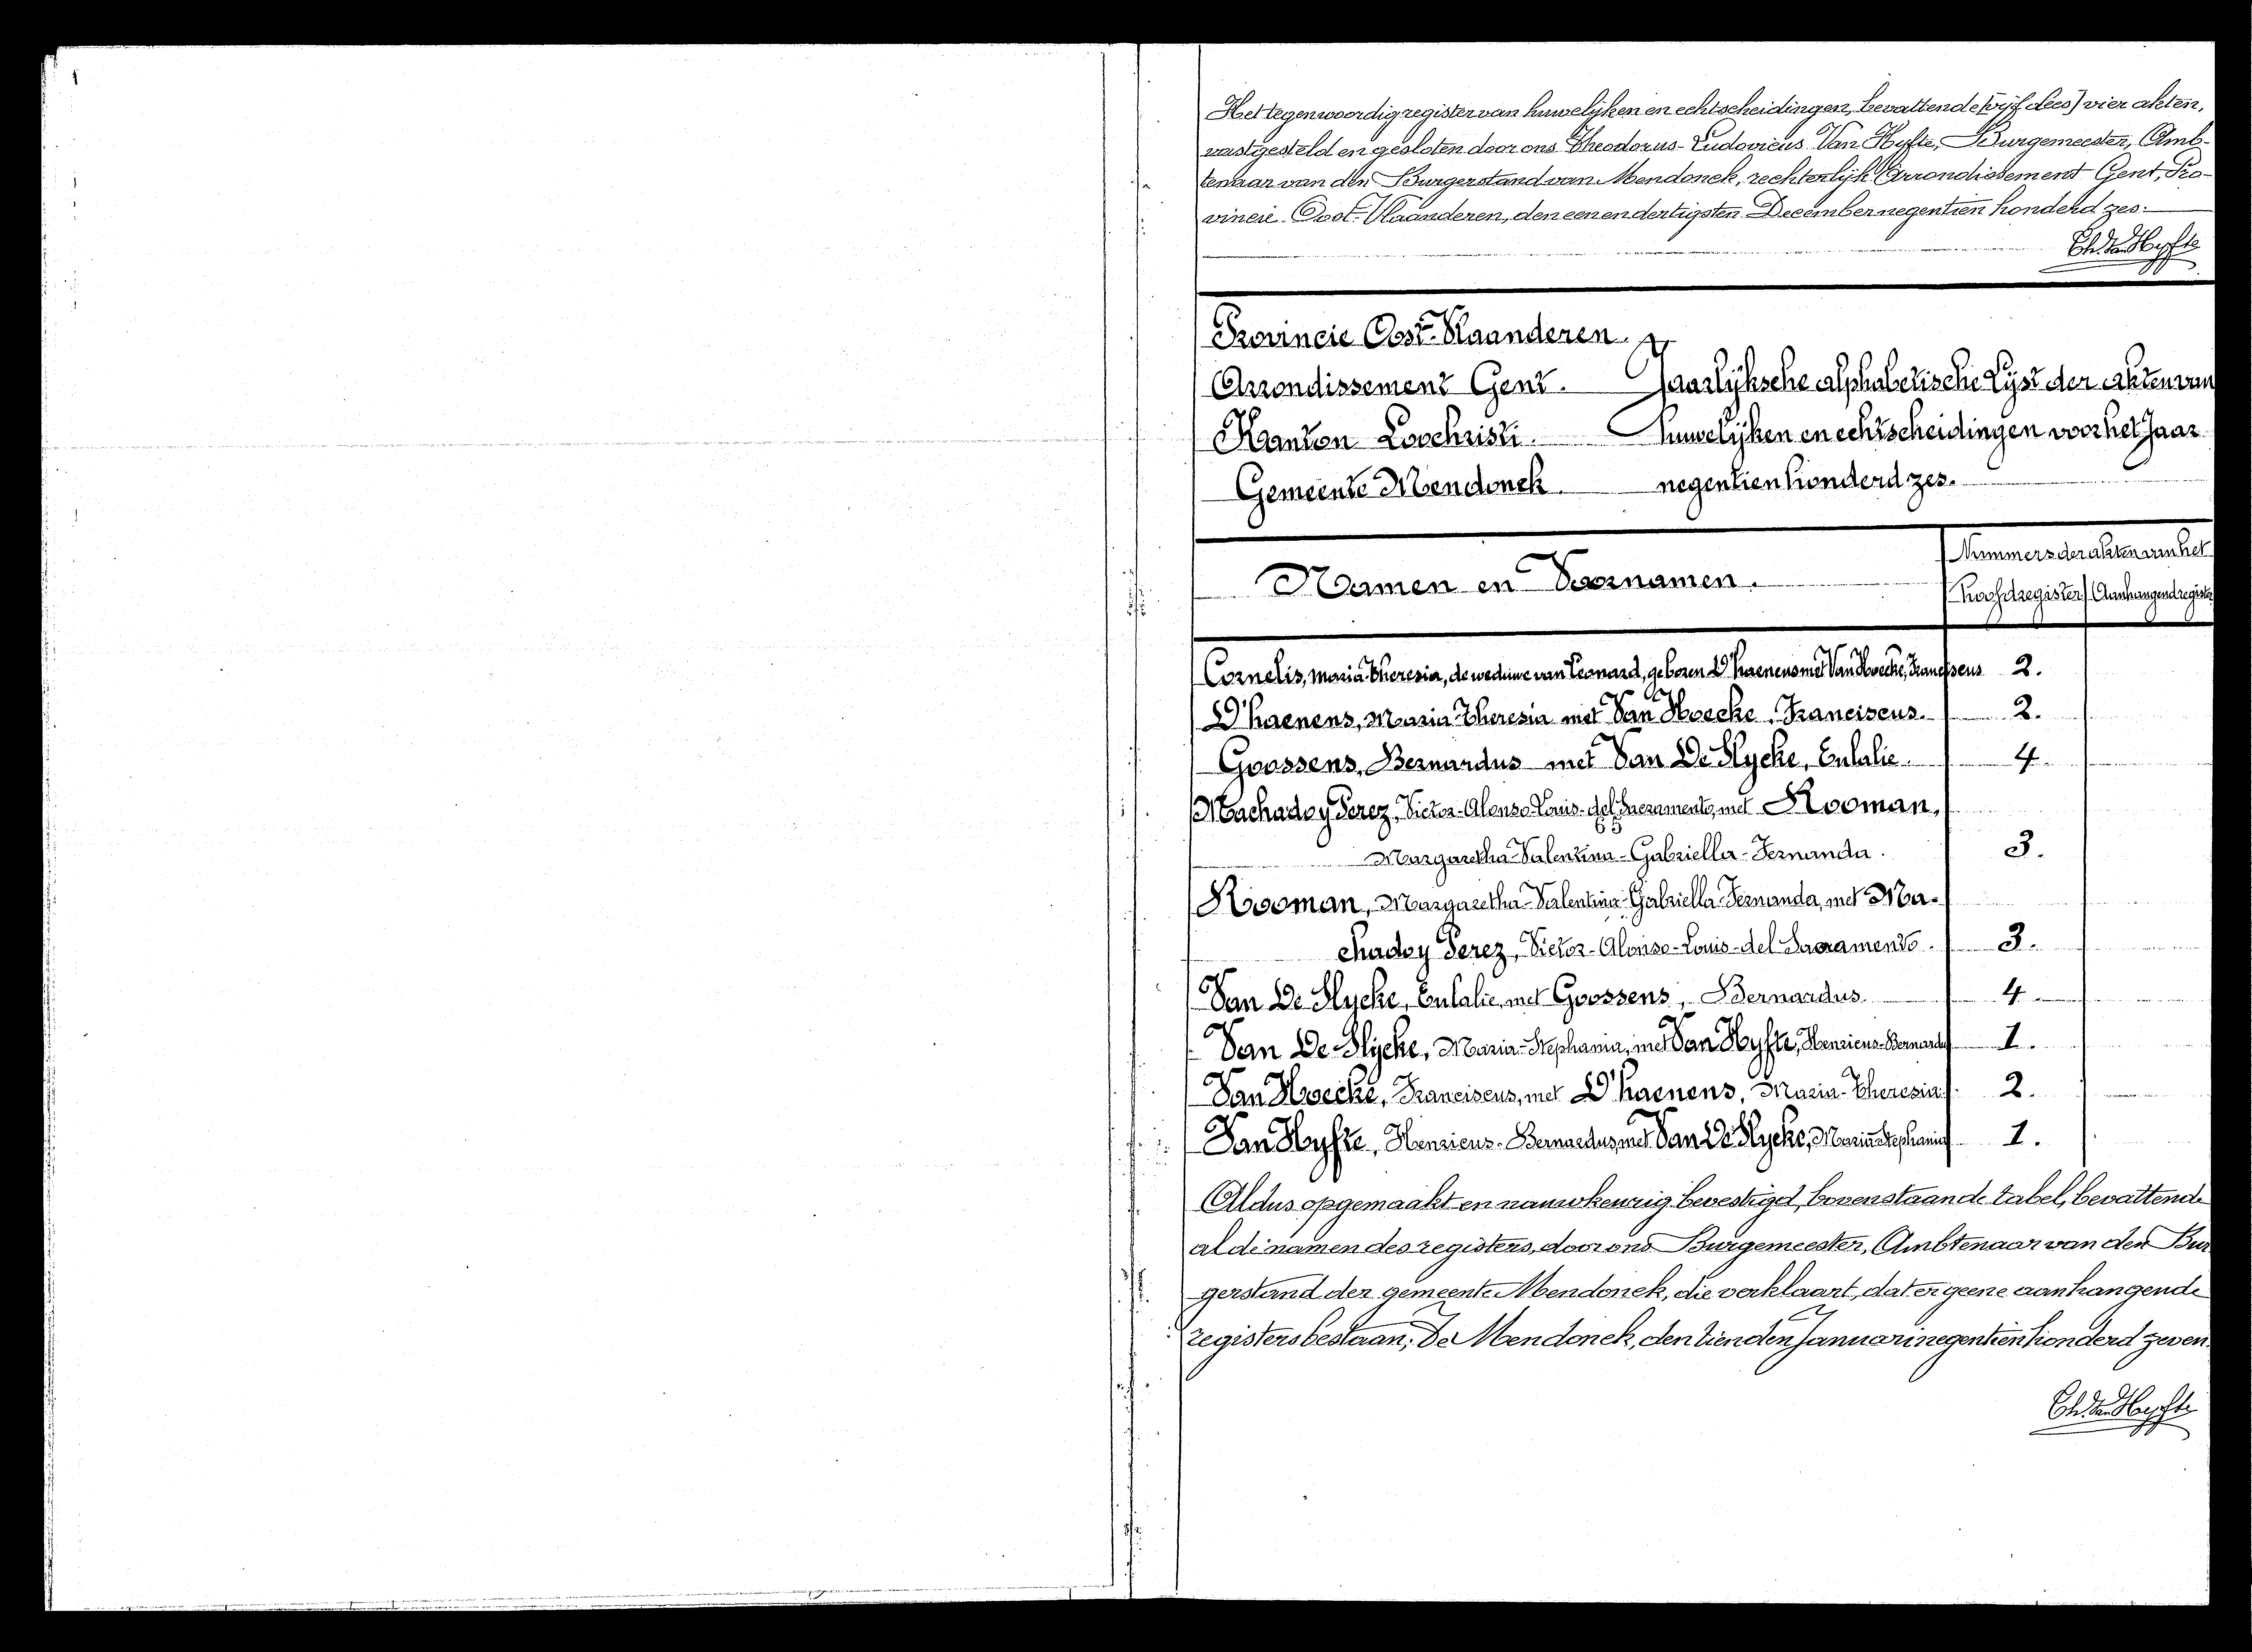 Het tegenwoordig register van huwelijken en echtscheidingen, bevattende (vijf lees) vier akten,
vastgesteld en gesloten door ons Theodorus-Ludovicus Van Hyfte, Burgemeester, Amb-
tenaar van den Burgerstand van Mendonck, rechterlijk Arrondissement Gent, Pro-
vincie Oost-Vlaanderen, den eenendertigsten December negentien honderd zes.
Th. Van Hyfte
Provincie Oost-Vlaanderen.
Arrondissement Gent. Jaarlijksche alphabetische Lijst der akten van
Kanton Loochristi. huwelijken en echtscheidingen voor het Jaar
Gemeente Mendonck negentien honderd zes.
Namen en Voornamen. Nummers der akten van het
hoofdregister Aanhangend register
Cornelis, Maria Theresia, de weduwe van Leonard, geboren D'haenens met Van Hoecke, Franciscus 2.
D'haenens, Maria Theresia met Van Hoecke, Franciscus. 2.
Goossens, Bernardus met Van De Slycke, Eulalie. 4.
Machado y Perez, Victor-Alonso-Louis-del Sacramento, met Kooman,
Margaretha-Valentina-Gabriella-Fernanda. 3.
Kooman, Margaretha-Valentina-Gabriella-Fernanda, met Ma-
chado y Perez, Victor-Alonso-Louis-del Sacramento. 3.
Van De Slycke, Eulalie, met Goossens, Bernardus 4
Van De Slycke, Maria-Stephania, met Van Hyfte, Henricus-Bernardus 1.
Van Hoecke, Franciscus, met D'haenens, Maria-Theresia 2.
Van Hyfte, Henricus-Bernardus, met Van De Slycke, Maria Stephania 1.
Aldus opgemaakt en nauwkeurig bevestigd, bovenstaande tabel, bevattende
al de namen des registers, door ons Burgemeester, Ambtenaar van den Bur
gerstand der gemeente Mendonck, die verklaart, dat er geene aanhangende
registers bestaan; Te Mendonck, den tienden Januari negentien honderd zeven.
Th. Van Hyfte